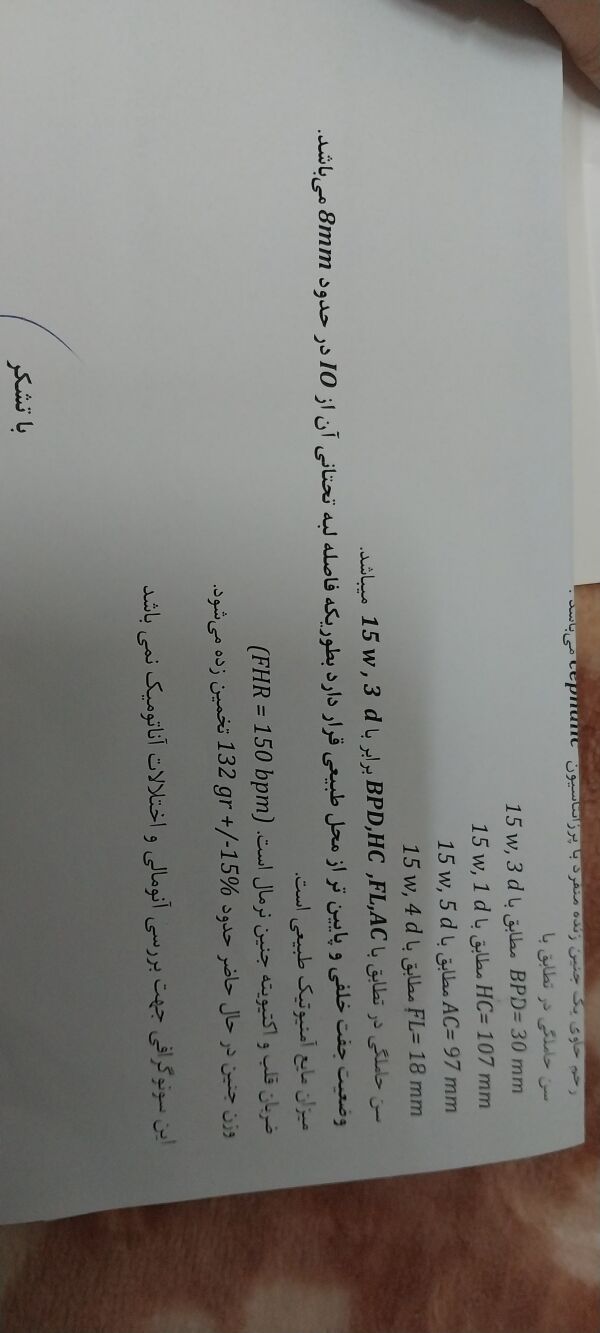 رحم حاوی یک جنین زنده منفرد با پرزانتاسیون cephalic می‌باشد .
سن حاملگی در تطابق با
BPD= 30 mm مطابق با 15 w, 3 d
HC= 107 mm مطابق با 15 w, 1 d
AC= 97 mm مطابق با 15 w, 5 d
FL= 18 mm مطابق با 15 w, 4 d
سن حاملگی در تطابق با BPD,HC ,FL,AC برابر با 15 w , 3 d میباشد.
وضعیت جفت خلفی و پایین تر از محل طبیعی قرار دارد بطوریکه فاصله لبه تحتانی آن از IO در حدود 8mm می‌باشد.
میزان مایع آمنیوتیک طبیعی است.
ضربان قلب و اکتیویته جنین نرمال است. (FHR = 150 bpm)
وزن جنین در حال حاضر حدود 132 gr +/-15% تخمین زده می‌شود.
این سونوگرافی جهت بررسی آنومالی و اختلالات آناتومیک نمی باشد
با تشکر